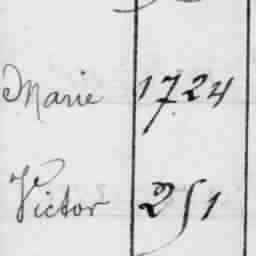 Marie 1724
Victor 251